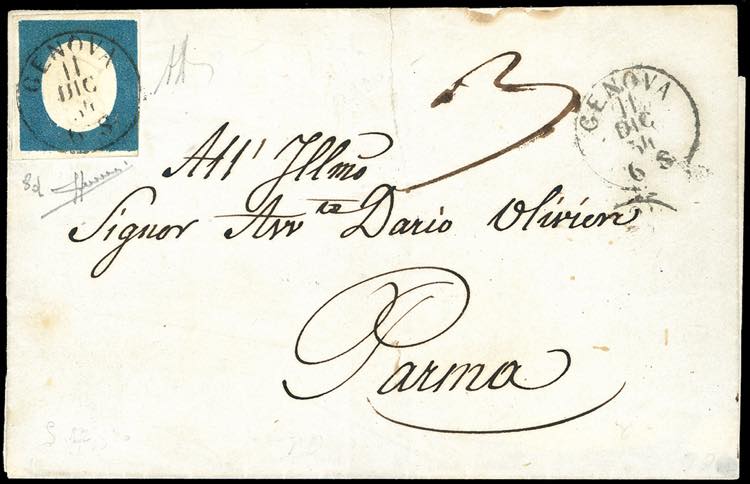 GENOVA
11
DIC
54
6 S
3
GENOVA
11
DIC
54
6 S
All' Illmo
Signor Avv to Dario Olivieri
Parma